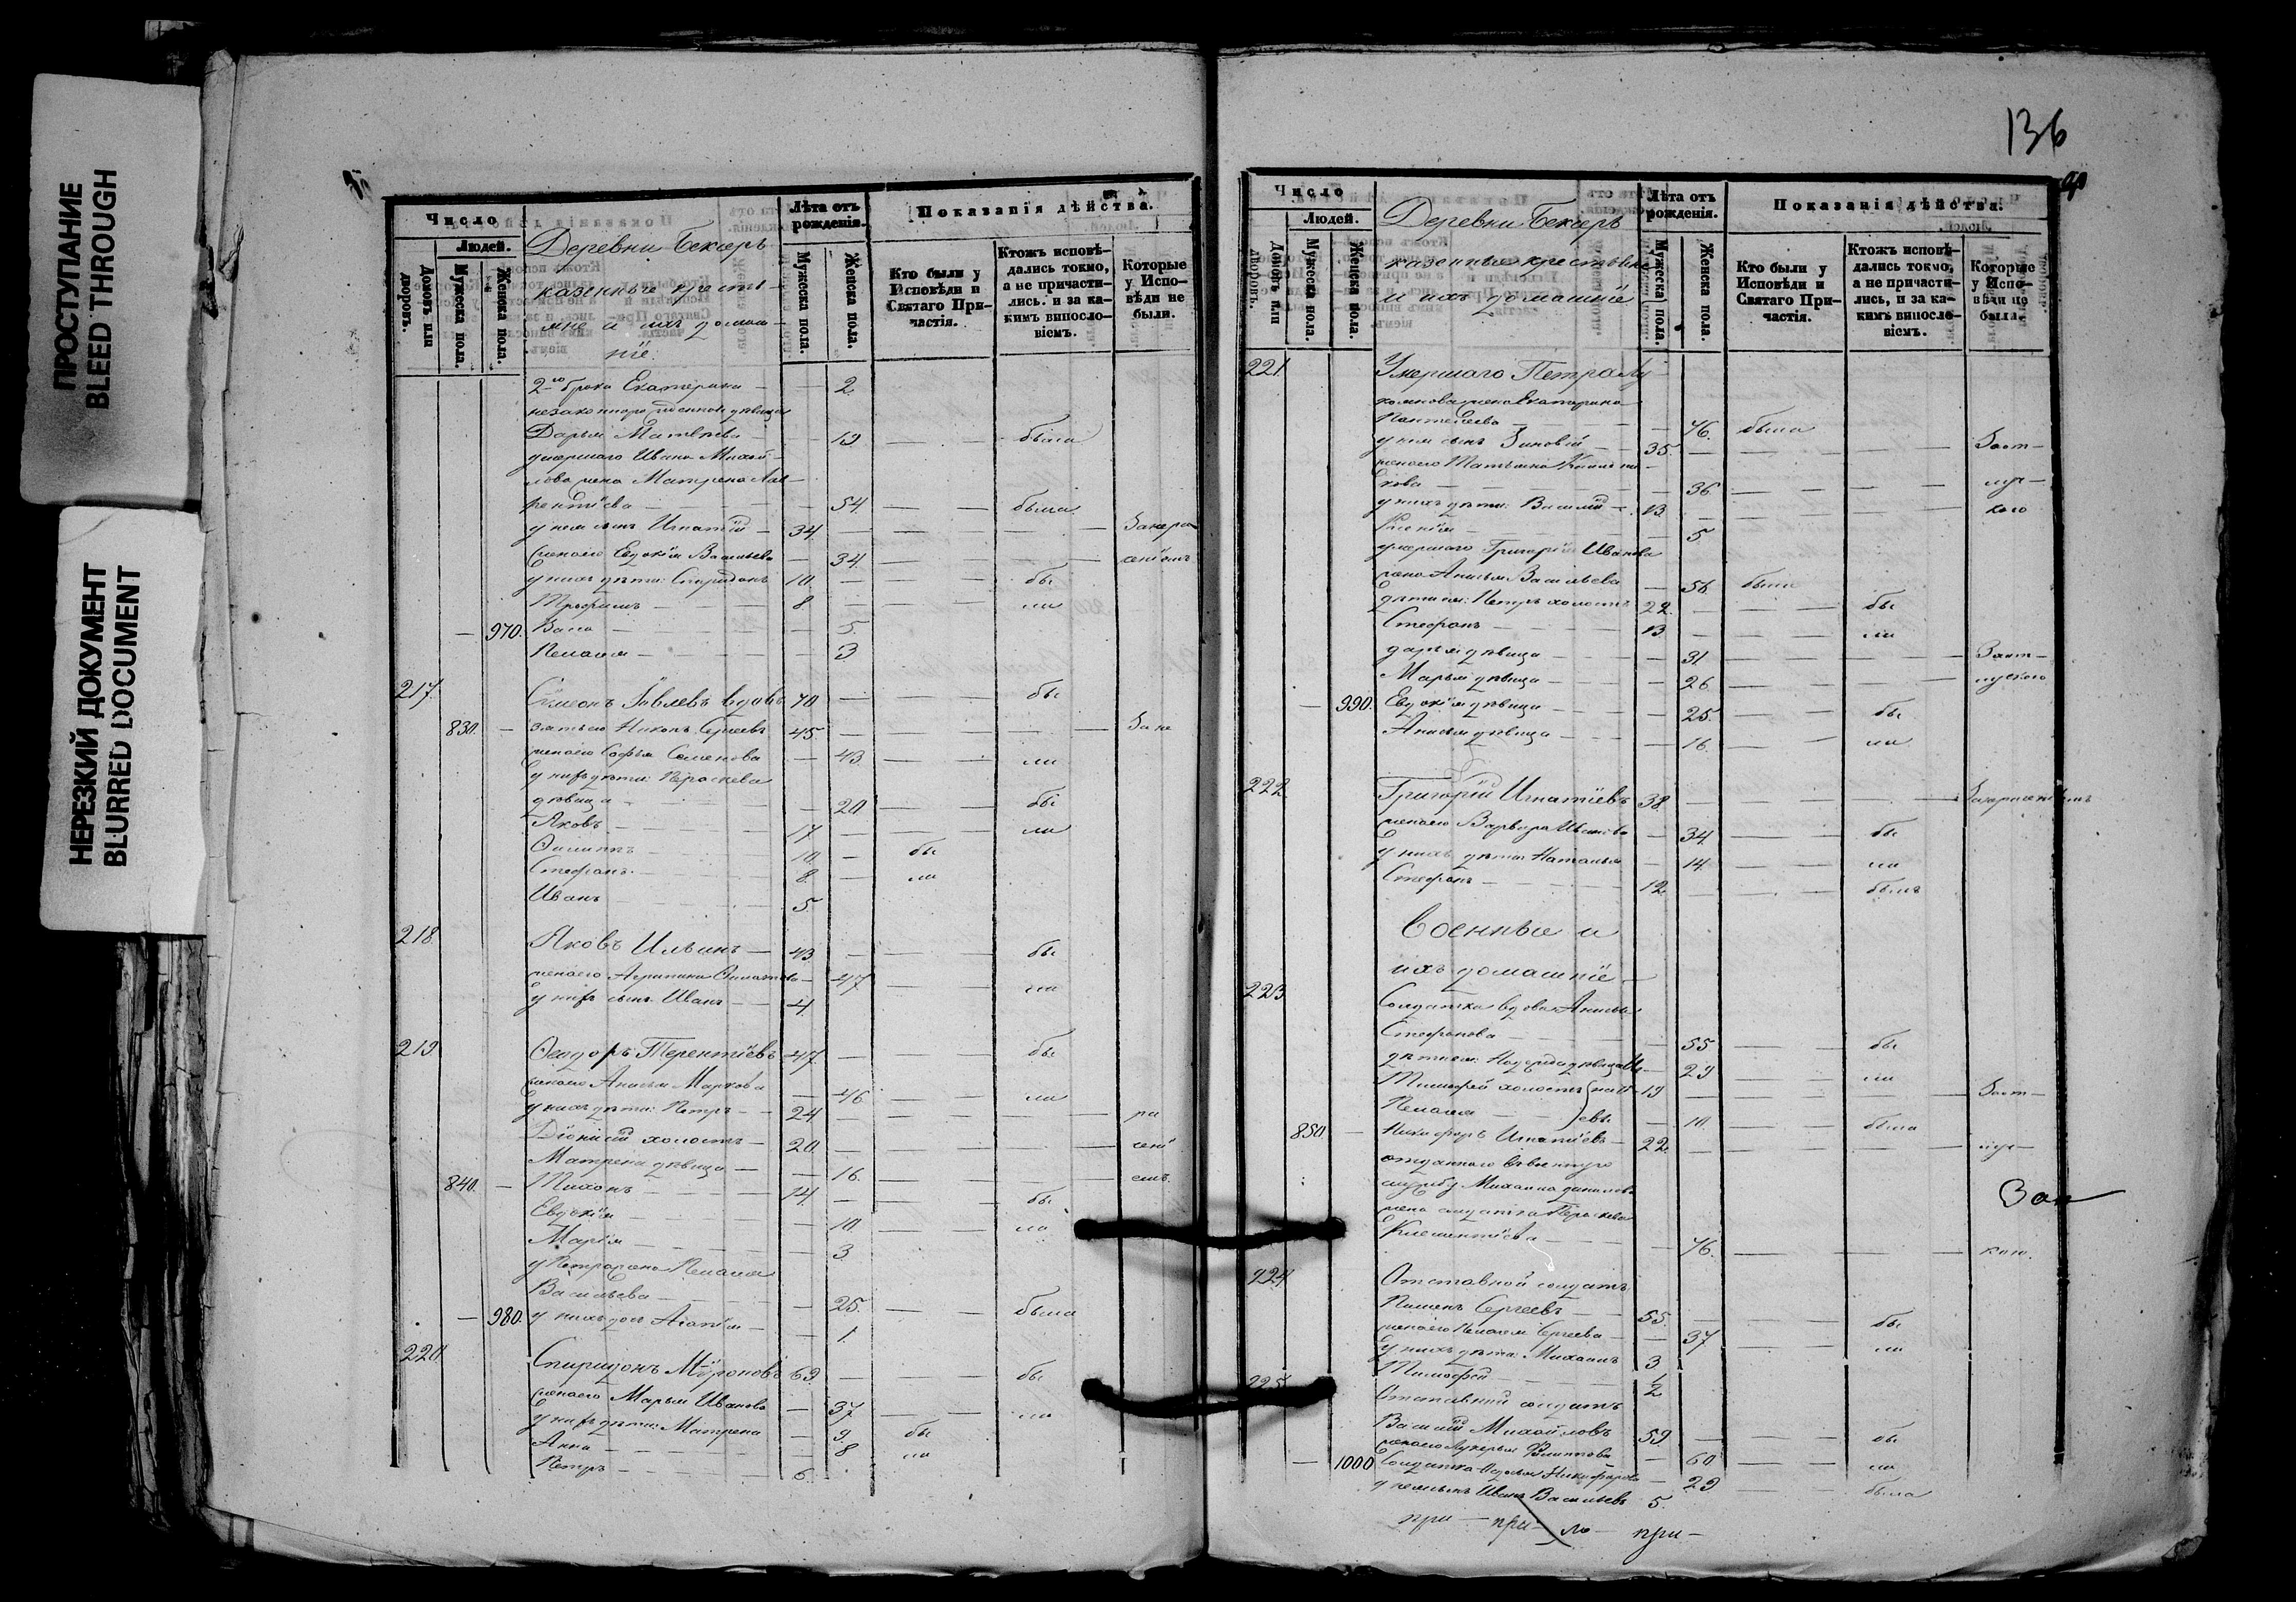 ПРОСТУПАНИЕ
BLEED THROUGH
НЕРЕЗКИЙ ДОКУМЕНТ
BLURRED DOCUMENT
Число
Людей.
Домовъ или дворовъ.
Мужеска пола.
Женска пола.
Деревни Бексеръ
казенные крестья-
не и ихъ домаш-
ніе.
Лѣта отъ рожденія.
Мужеска пола.
Женска пола.
Показанія дѣйства.
Кто были у Исповѣди и Святаго Причастія.
Ктожъ исповѣдались токмо, а не причастились. и за какимъ винословіемъ.
Которые у Исповѣди не были.
2го брака Екатерина — — 2
незаконнорожденной дѣвицы
Дарьи Матвѣева — — 19 — — была
умершаго Ивана Михай-
лова жена Матрена Лав-
рентіева — — 54 — — была
у нея сынъ Игнатій — 34. — — —
жена его Евдокія Васильева — 34. — — —
у нихъ дѣти: Спиридонъ 10. — — — бы
Трофимъ — — 8 — — — ли
— 970. Васса — — — 5.
Пелагея — — — 3
217. Симеонъ Іовлевъ вдовъ 70 — — — бы
830. — зять его Никонъ Сергеевъ 45. — — — За не
жена его Софья Семенова — 43. — — ли
у нихъ дѣти: Параскева
дѣвица — — 20 — — бы
Яковъ — — 17 — — — ли
Филиппъ — — 10. — бы
Стефанъ — — 8. — ли
Иванъ — — 5.
218. Яковъ Ильинъ — 43. — — — бы
жена его Агрипина Филатова — 47 — — ли
у нихъ сынъ Иванъ — 4.
219 Феодоръ Терентіевъ 47. — — — бы
жена его Анисья Маркова — 46 — — ли
у нихъ дѣти: Петръ — 24
Діонисій холостъ — 20.
Матрена дѣвица — — 16.
840. — Тихонъ — — 14. — — — бы
Евдокія — — — 10 — — ла
Марія — — — 3
у Петра жена Пелагея
Васильева — — 25. — — была
— 980. у нихъ дочь Агафія — — 1
220. Спиридонъ Мѵроновъ 69. — — — бы
жена его Марья Иванова — 37. — — ли
у нихъ дѣти: Матрена — 9. бы
Анна — — — 8 ли
Петръ — — 6.
136
Число
Людей.
Домовъ или дворовъ.
Мужеска пола.
Женска пола.
Деревни Бексеръ
казенные крестьяне
и ихъ домашніе
Лѣта отъ рожденія.
Мужеска пола.
Женска пола.
Показанія дѣйства.
Кто были у Исповѣди и Святаго Причастія.
Ктожъ исповѣдались токмо, а не причастились, и за какимъ винословіемъ.
Которые у Исповѣди не были.
221. Умершаго Петра Лу-
жена Екатерина
Пантелеева — — 76. была
у нея сынъ Зиновій — 35. — — —
жена его Татьяна
— — 36
у нихъ дѣти: Василій — 13.
Ксенія — — 5
умершаго Григорія Иванова
жена Анисья Васильева — 56. была
дѣти ея: Петръ холостъ 22. — — — бы
Стефанъ — — 13 — — — ли
Дарья дѣвица — — 31.
Марья дѣвица — — 26
— 990. Евдокія дѣвица — — 25. — — бы
Анисья дѣвица — — 16. — — ли
222 Григорій Игнатіевъ 38.
жена его Варвара Иванова — 34. — — бы
у нихъ дѣти: Наталья — 14. — — ли
Стефанъ — — 12. — — — былъ
Военные и
ихъ домашніе —
223 Солдатка вдова Анисья
Стефанова — — 55 — — бы
дѣти ея: Надежда дѣвица — 29 — — ли
Тимофей холостъ — 19
Пелагея — — 10. — — была
850. — Никифоръ Игнатіевъ — 22.
отданнаго въ военную
службу Михаила Данилова
жена солдатка Параскева
Климентіева — — 76.
224 Отставной солдатъ
Пименъ Сергеевъ — 55.
жена его Пелагея Сергеева — 37 — — бы
у нихъ дѣти: Михаилъ 3 ли
Тимофей — — 1/2
225. Отставной солдатъ
Василій Михайловъ 59 — — — бы
жена его Лукерья Филиппова — 60 — — ли
— 1000 Солдатка Никифорова — 29 — — была
у нея сынъ Иванъ Васильевъ 5.
при — при — ло — при —